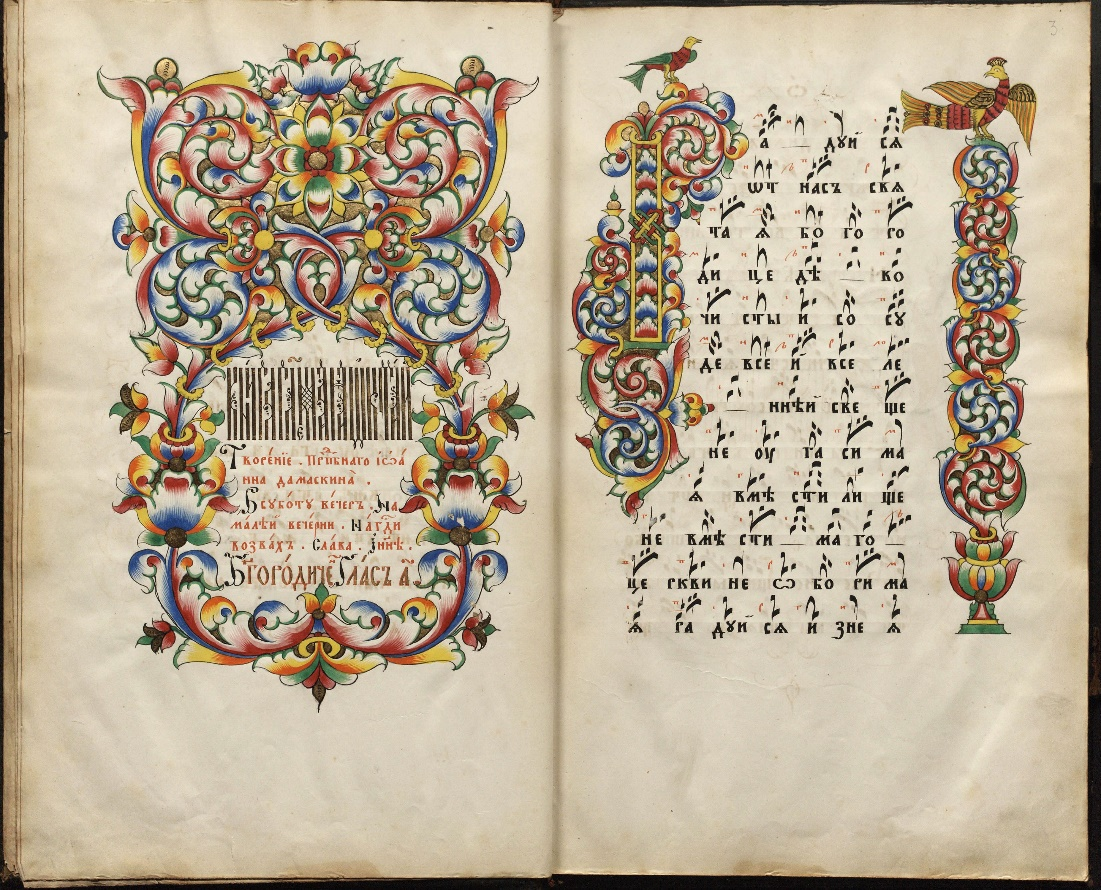 Творе́нїе . Прп҇бнаго іѡа́
нна дамаскина̀ .
В субо́ту ве́чер . На
ма́лѣй вече́рни . На гд҇и
возва́хъ . Сла́ва . И҆ ны́нѣ .
Бг҇оро́диче҇ Гла́съ а҃ .
3
Ра дуй ся
ѿт насъ свѧ
та ѧ бо го ро
ди це дѣ во
чи сты и со су
де все и все ле
ннѣй све ще
не оу га си ма
ѧ вмѣ сти ли ще
не вмѣ сти ма го
це ркви не ѡ бо ри ма
ѧ ра дуй сѧ и зне ѧ